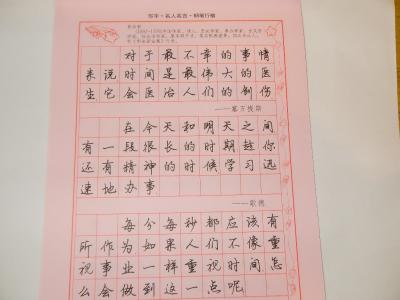 写字·名人名言·钢笔行楷
对于最不幸的事情
来说时间是最伟大的医
生它会医治人们的创伤
在今天和明天之间
有一段很长的时期趁你
还有精神的时候学习迅
速地办事
——歌德
每分每秒都应该有
所作为如果人们不像重
视事业一样重视时间怎
么会做到这一点呢